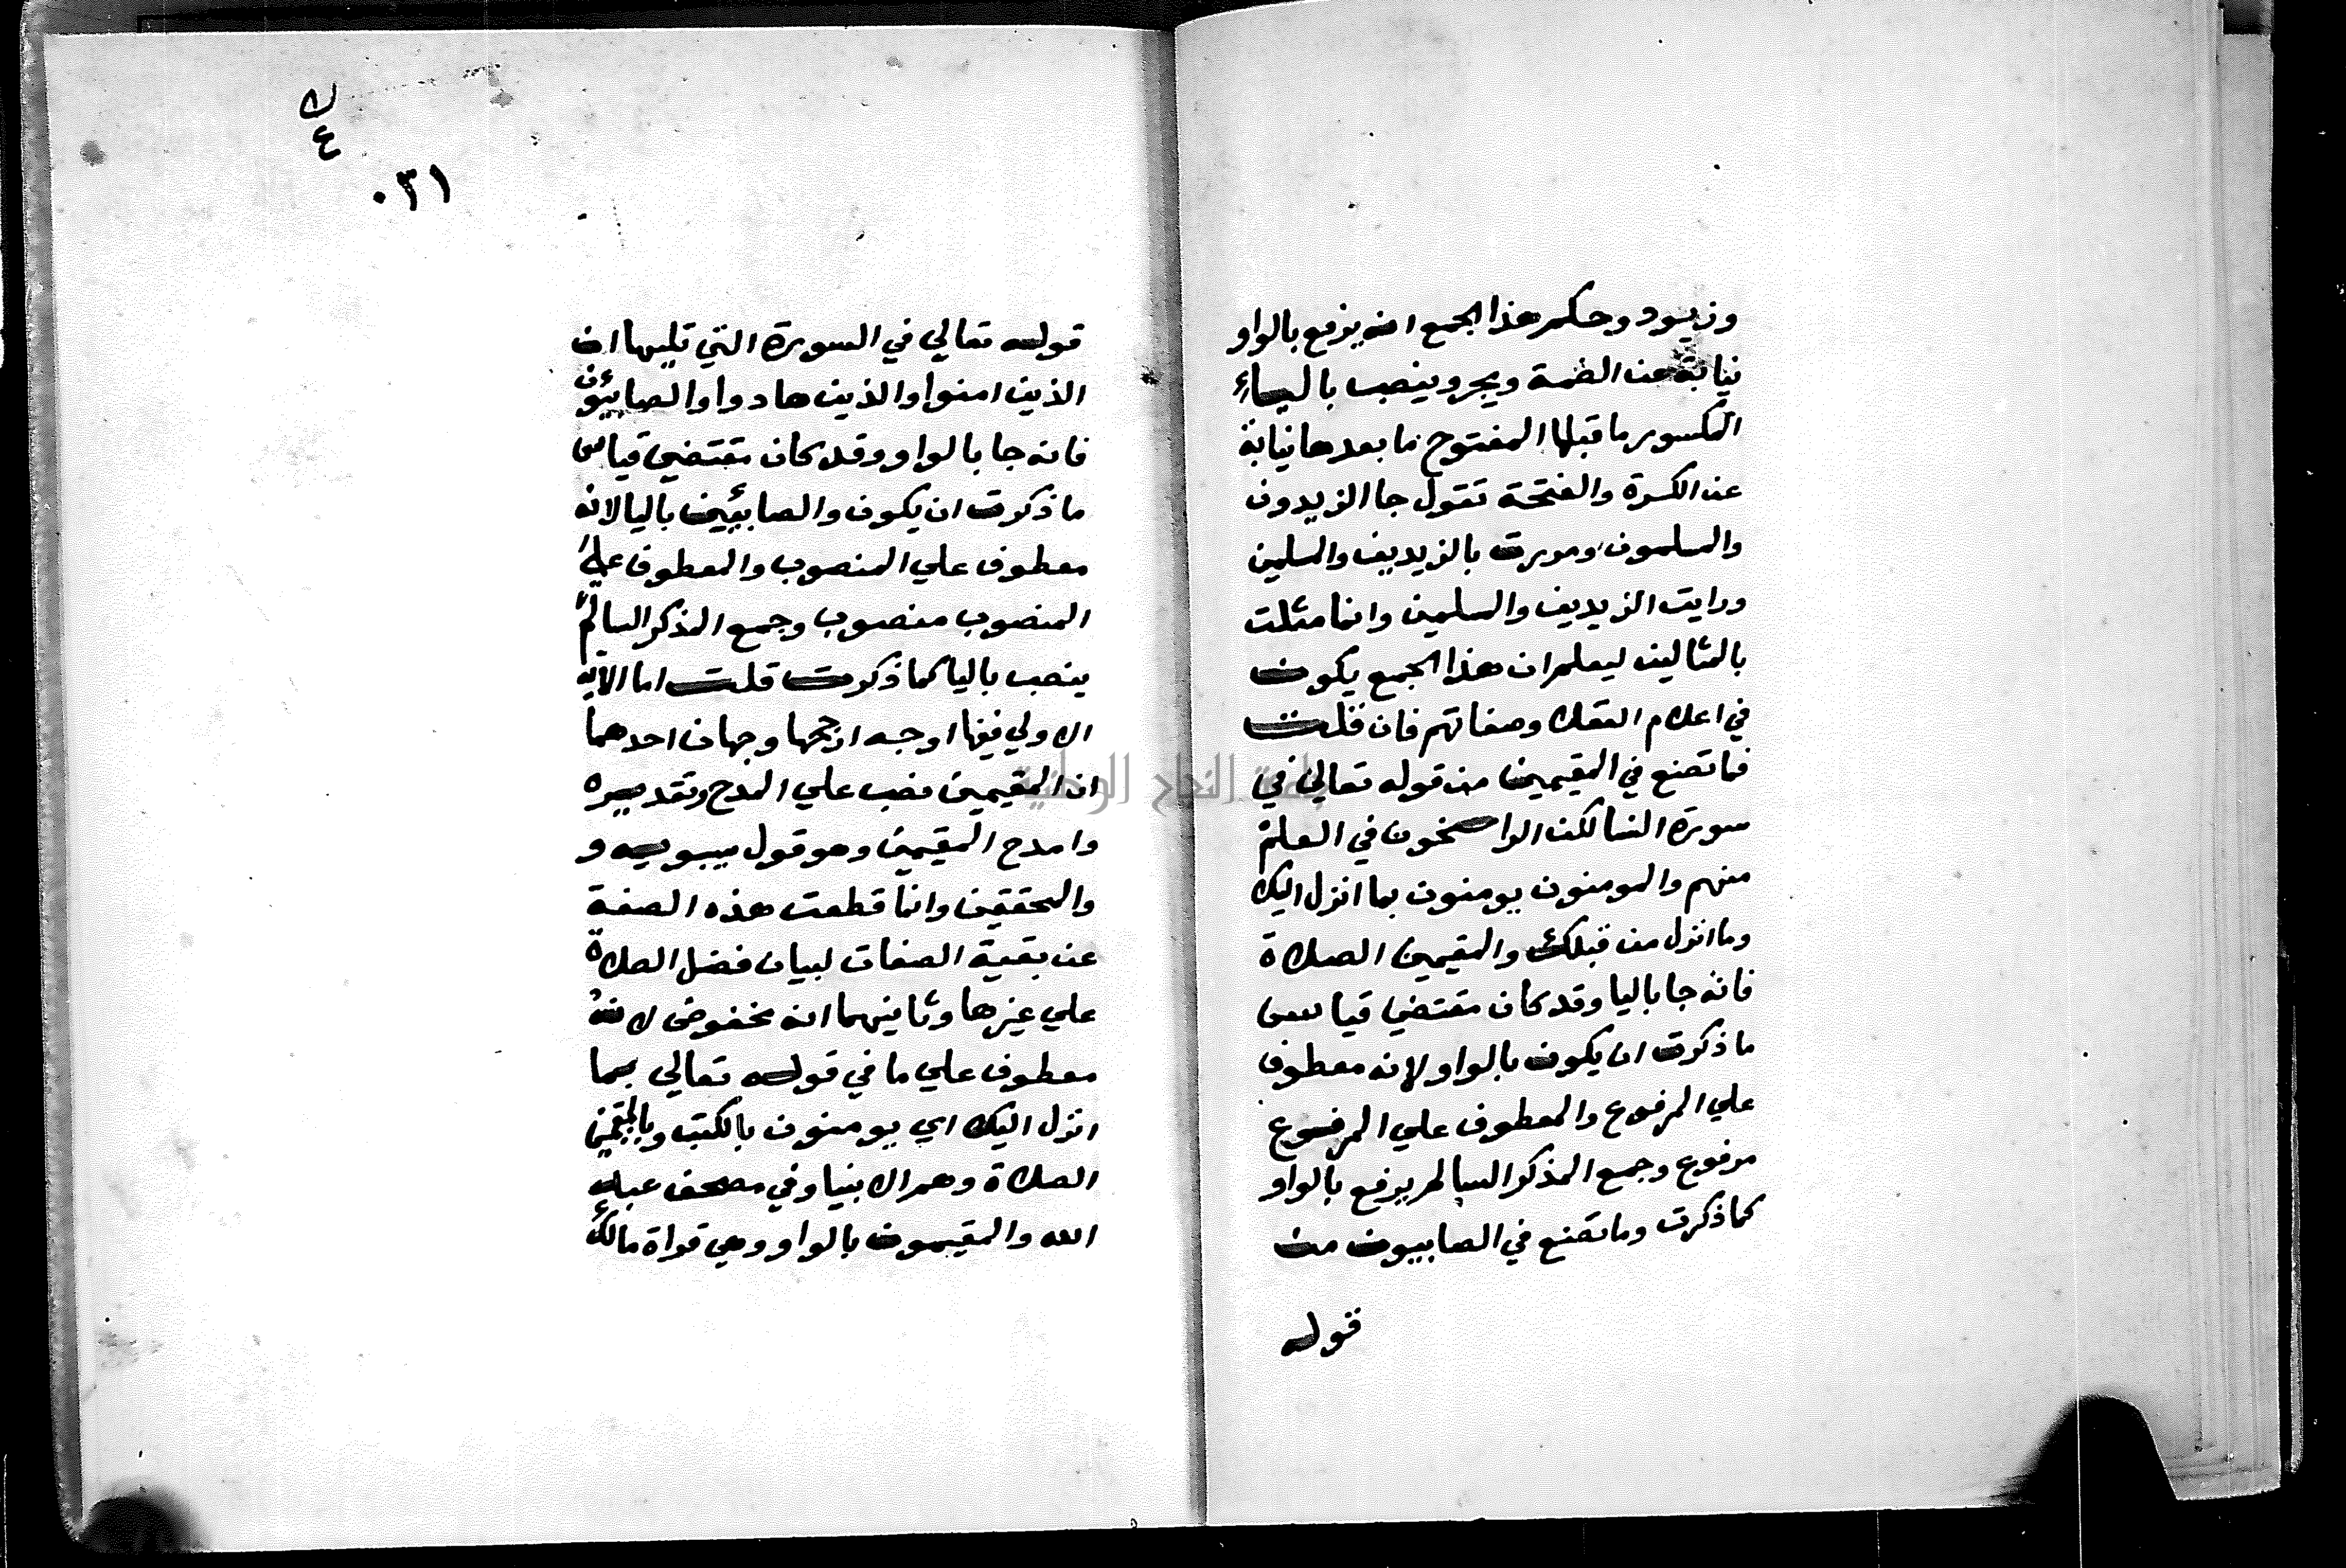 وزيود وحكم هذا الجمع انه يرفع بالواو
نيابة عن الضمة ويجر وينصب بالياء
المكسور ما قبلها المفتوح ما بعدها نيابة
عن الكسرة والفتحة تقول جا الزيدون
والمسلمون ومررت بالزيدين والمسلمين
ورايت الزيدين والمسلمين وانما مثلت
بالمثالين ليعلم ان هذا الجمع يكون
في اعلام العقلا وصفاتهم فان قلت
فما تصنع في المقيمين من قوله تعالي في
سورة النسا لكن الراسخون في العلم
منهم والمومنون يومنون بما انزل اليك
وما انزل من قبلك والمقيمين الصلاة
فانه جا باليا وقد كان مقتضي قياس
ما ذكرت ان يكون بالواو لانه معطوف
علي المرفوع والمعطوف علي المرفوع
مرفوع وجمع المذكر السالم يرفع بالواو
كما ذكرت وما تصنع في الصابيون من
قوله
ك
٤
٠٣١
قوله تعالي في السورة التي تليها ان
الذين امنوا والذين هادوا والصابئون
فانه جا بالواو وقد كان مقتضي قياس
ما ذكرت ان يكون والصابئين باليا لانه
معطوف علي المنصوب والمعطوف علي
المنصوب منصوب وجمع المذكر السالم
ينصب باليا كما ذكرت قلت اما الاية
الاولي ففيها اوجه ارجحها وجهان احدهما
ان المقيمين نصب علي المدح وتقديره
وامدح المقيمين وهو قول سيبويه و
والمحققين وانما قطعت هذه الصفة
عن بقية الصفات لبيان فضل الصلاة
علي غيرها وثانيهما انه مخفوض لانه
معطوف علي ما في قوله تعالي بما
انزل اليك اي يومنون بالكتب وبالمقيمين
الصلاة وهم الانبيا وفي مصحف عبد
الله والمقيمون بالواو وهي قراة مالك
جامعة النجاح الوطنية